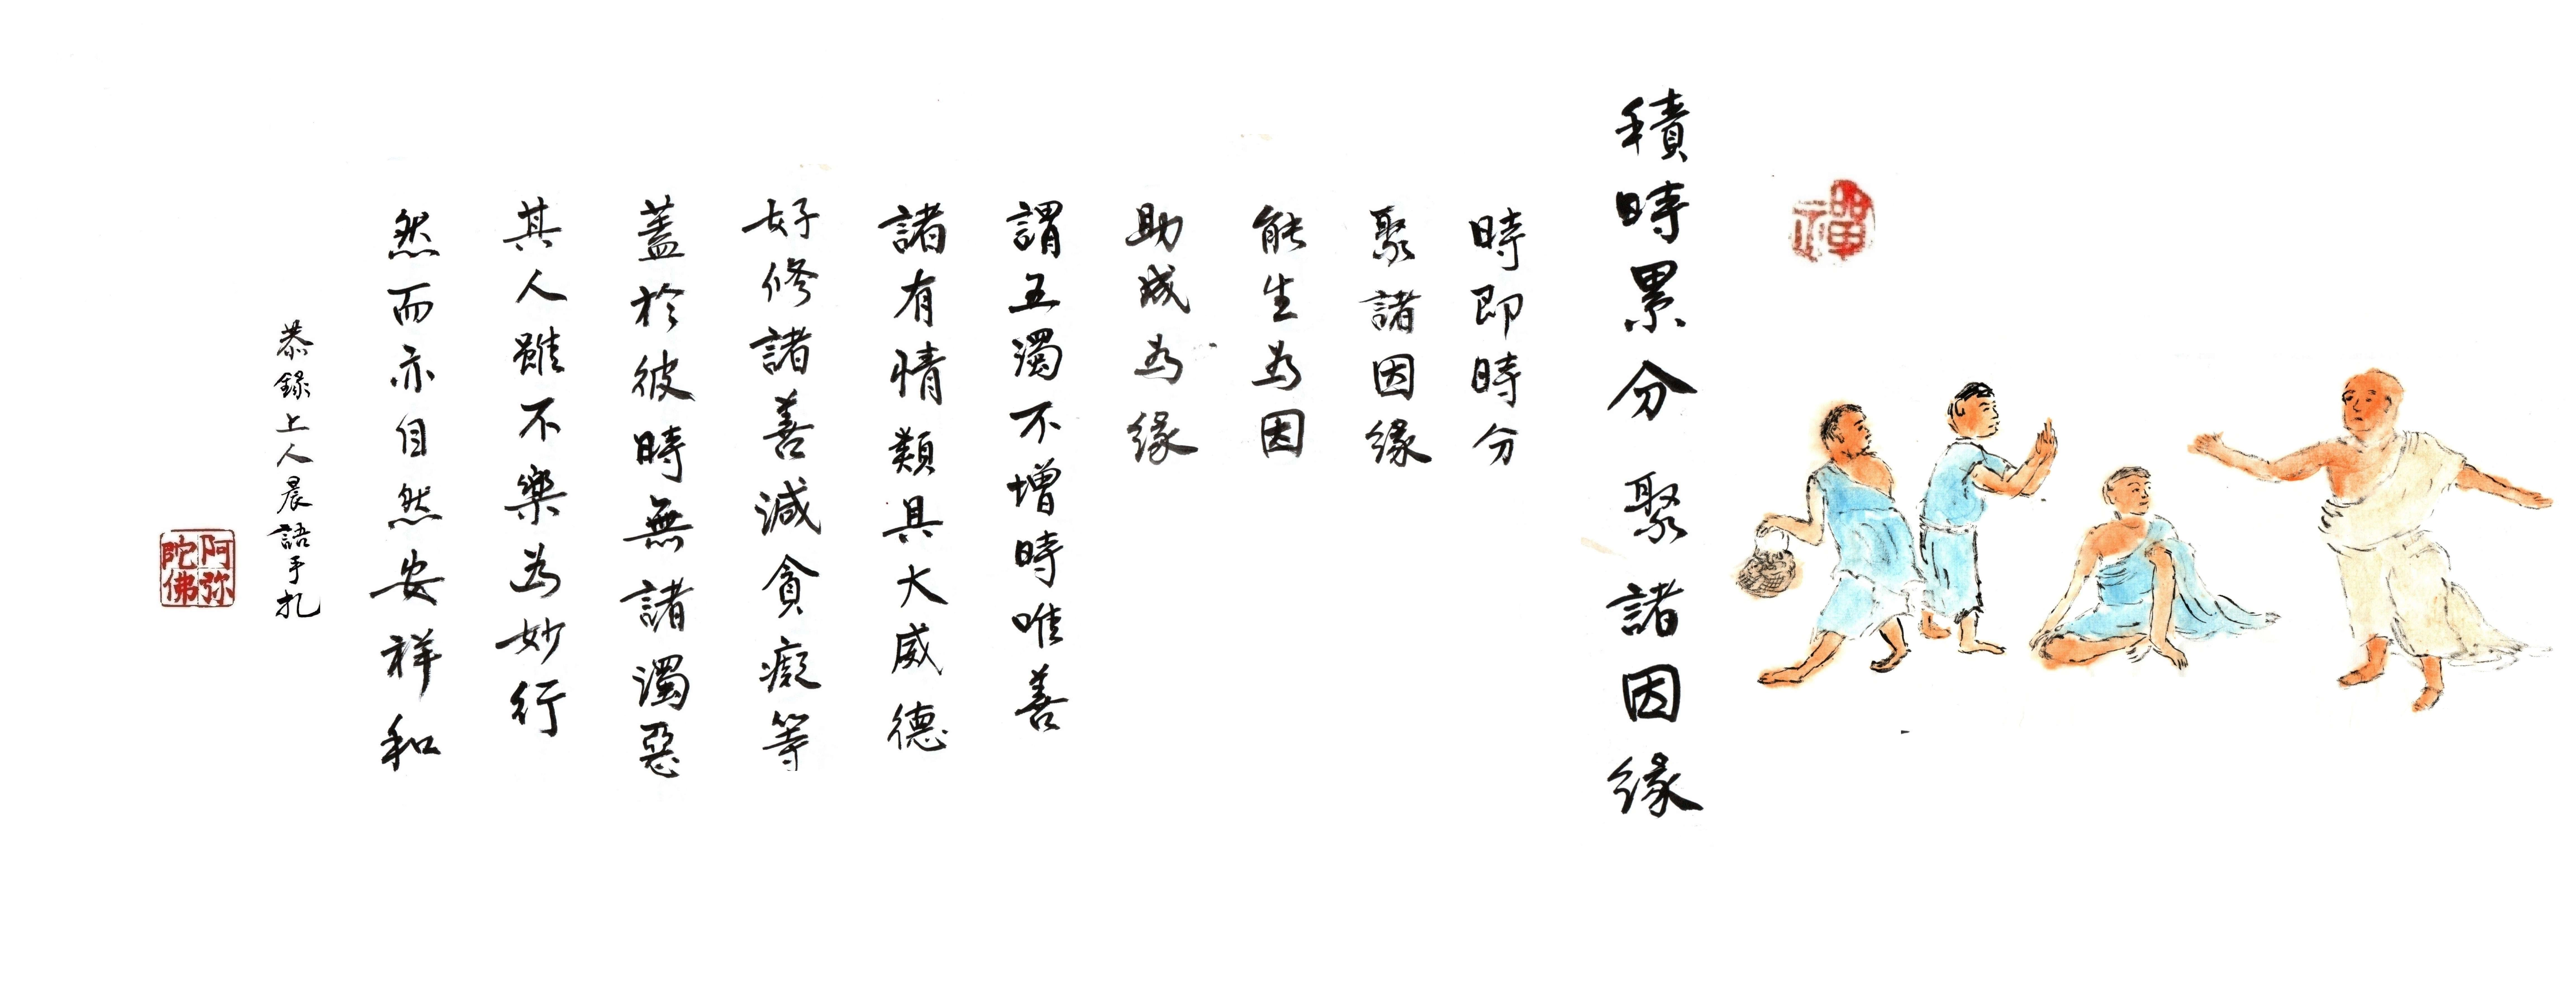 禪
積時累分聚諸因緣
時即時分
聚諸因緣
能生為因
助成為緣
謂五濁不增時唯善
諸有情類具大威德
好修諸善減貪癡等
蓋於彼時無諸濁惡
其人雖不樂為妙行
然而亦自然安祥和
恭錄上人晨語手扎
阿弥陀佛